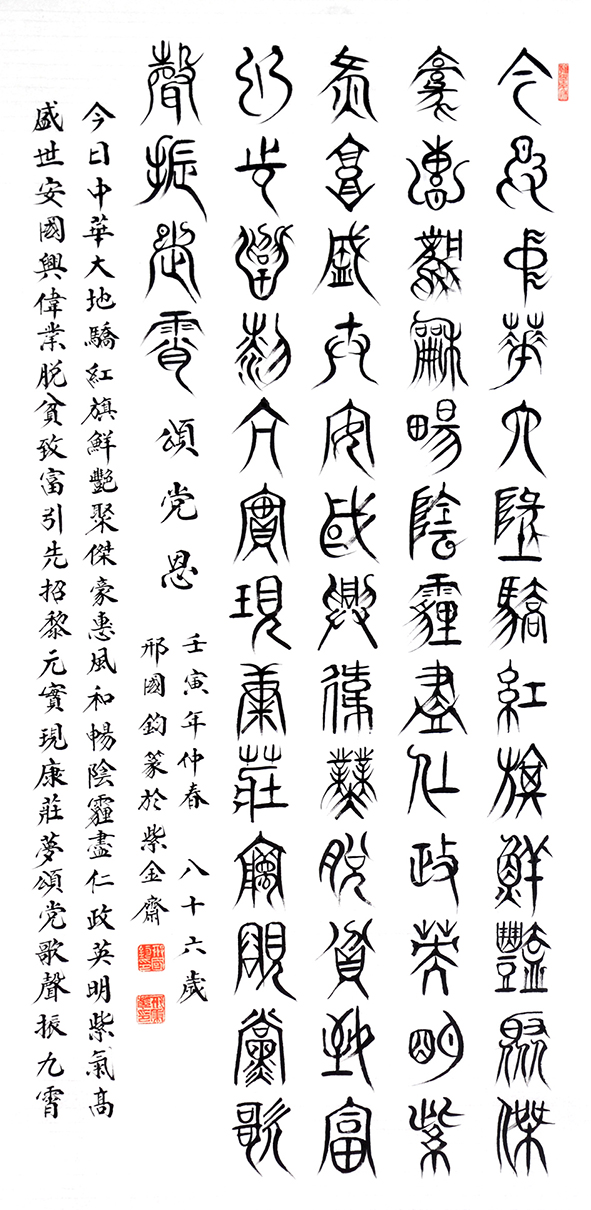 今日中華大地驕紅旗鮮艷聚傑
豪惠風和暢陰霾盡仁政英明紫
氣高盛世安國興偉業脱貧致富
引先招黎元實現康莊夢頌黨歌
聲振九霄 頌党恩
壬寅年仲春 八十六歲
邢國鈞篆於紫金齋
今日中華大地驕紅旗鮮艷聚傑豪惠風和暢陰霾盡仁政英明紫氣高
盛世安國興偉業脱貧致富引先招黎元實現康莊夢頌党歌聲振九霄